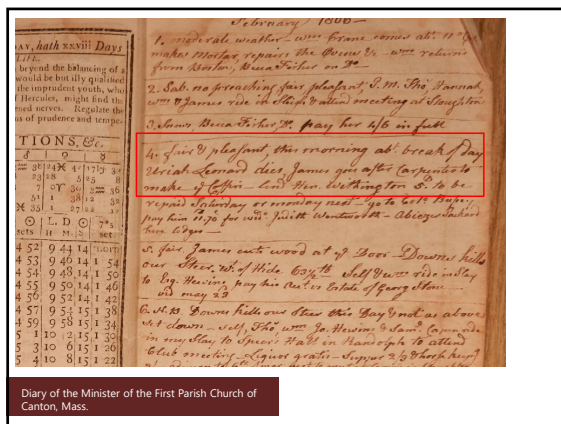 February 1806
DAY, hath xxviii Days
LIFE.
beyond the balancing of a
would be but illy qualified
the imprudent youth, who
f Hercules, might find the
red nerves. Regulate the
ns of prudence and tempe-
TIONS, &c.
sets H M S set
4 52 9 44 14
4 53 9 46 14 1 54
4 54 9 48 14 1 50
4 55 9 50 14 1 46
4 56 9 52 14 1 42
4 57 9 54 15 1 38
4 59 9 58 15 1 34
5 1 10 2 15 1 30
5 3 10 6 15 1 26
5 4 10 8 15 1 22
1. moderate weather - wm Crane comes abt. 11
makes Mortar, repairs the Ovens &c - wm returns
from Boston, Becca Fisher on Do
2. Sab. no preaching fair pleasant, J. M. Tho, Hannah,
wm & James ride in Sleigh & attend meeting at Stoughton
3. Snows, Becca Fisher, Dr. pay her 4/6 in full
4. fair & pleasant, this morning abt. break of day
Uriah Leonard dies, James goes after Carpenter to
make ye Coffin - lend Hen. Withington 5. to be
repaid Saturday or monday next - go to Colo
pay him 11.70 for wid. Judith Wentworth - Abiezer Packard
here lodges
5. fair, James cuts wood at ye Door - Downs kills
our Steer, wt. of Hide 63 1/2 lb Self & wm ride in Slay
to Esq. Hewins pay his Acct. vs Estate of Georg Stone
old may 23
6. N.B. Downs kills our Steer this Day & not as above
set down - Self, Tho, wm, Jo. Hewins & Saml. Capen ride
in my Slay to Spears Hall in Randolph to attend
Club meeting - Liquor gratis - Supper 2/3 & horse keepg
Diary of the Minister of the First Parish Church of
Canton, Mass.